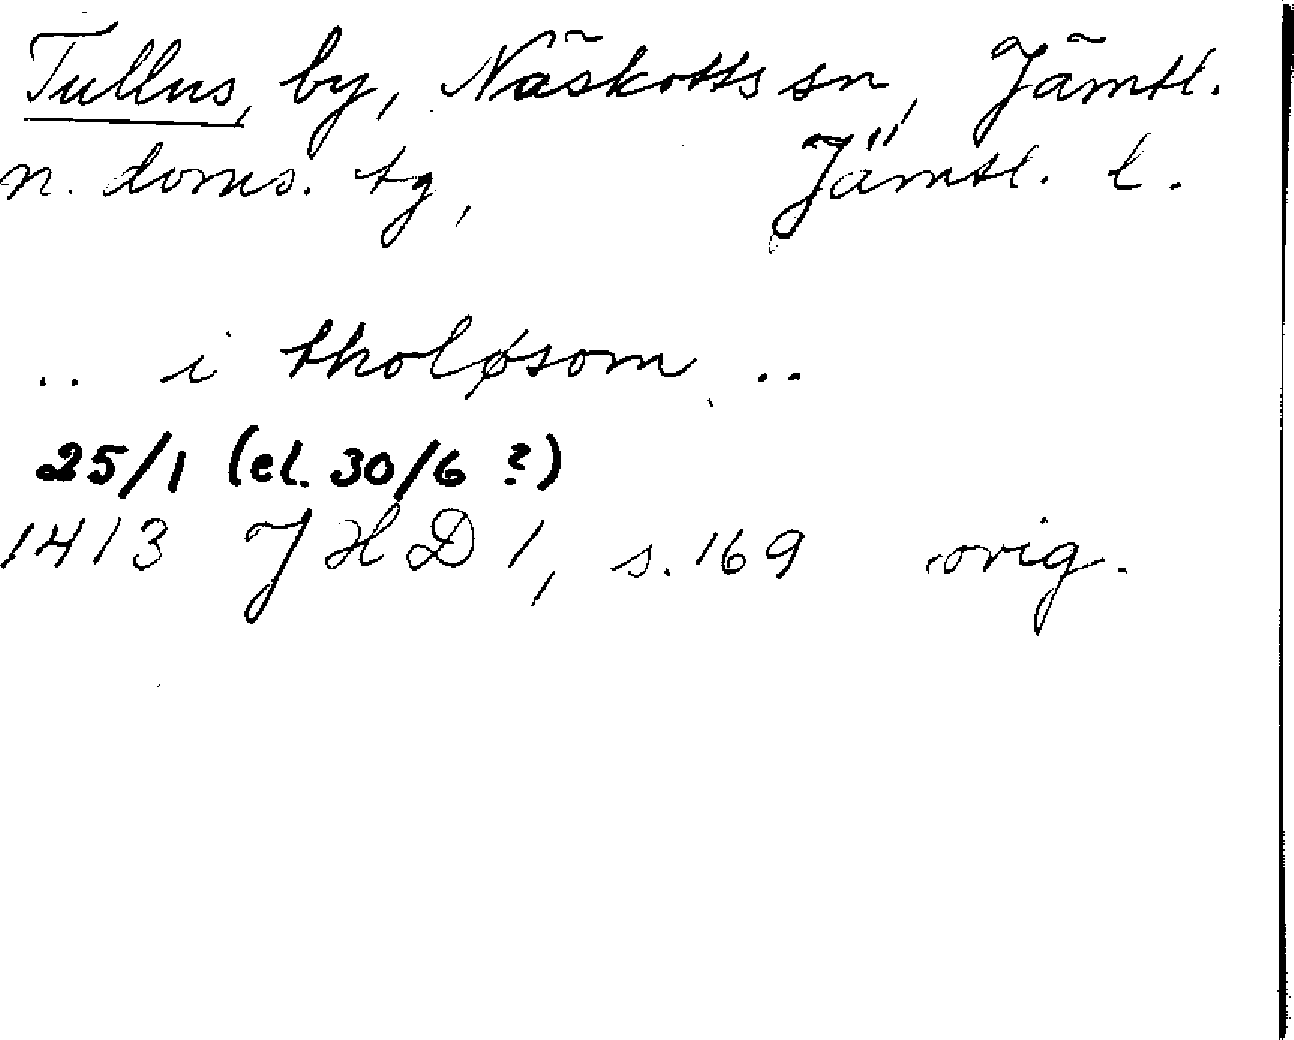 Tullus, by, Näskotts sn, Jämtl.
n. doms. tg, Jämtl. l.
.. i tholøsom ..
25/1 (el. 30/6 ?)
1413 JHD 1, s. 169 orig.